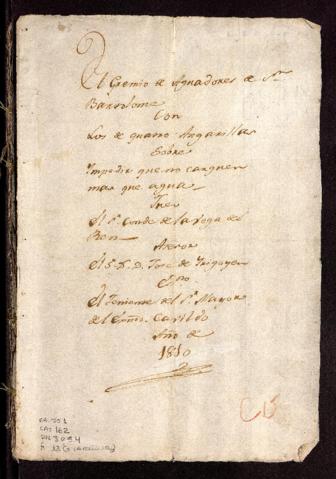 El Gremio de Aguadores de Sn
Bartolome
Con
Los de quatro Angarillas
Sobre
Impedir que no carguen
mas que agua
Juez
El Sr Conde de la Vega del
Ren
Asesor
El Sr D. D. Jose de Irigoyen
Esno
El Teniente del Sno Mayor
del Exmo Cavildo
Año de
1810
CAJ 162
DOC 3094